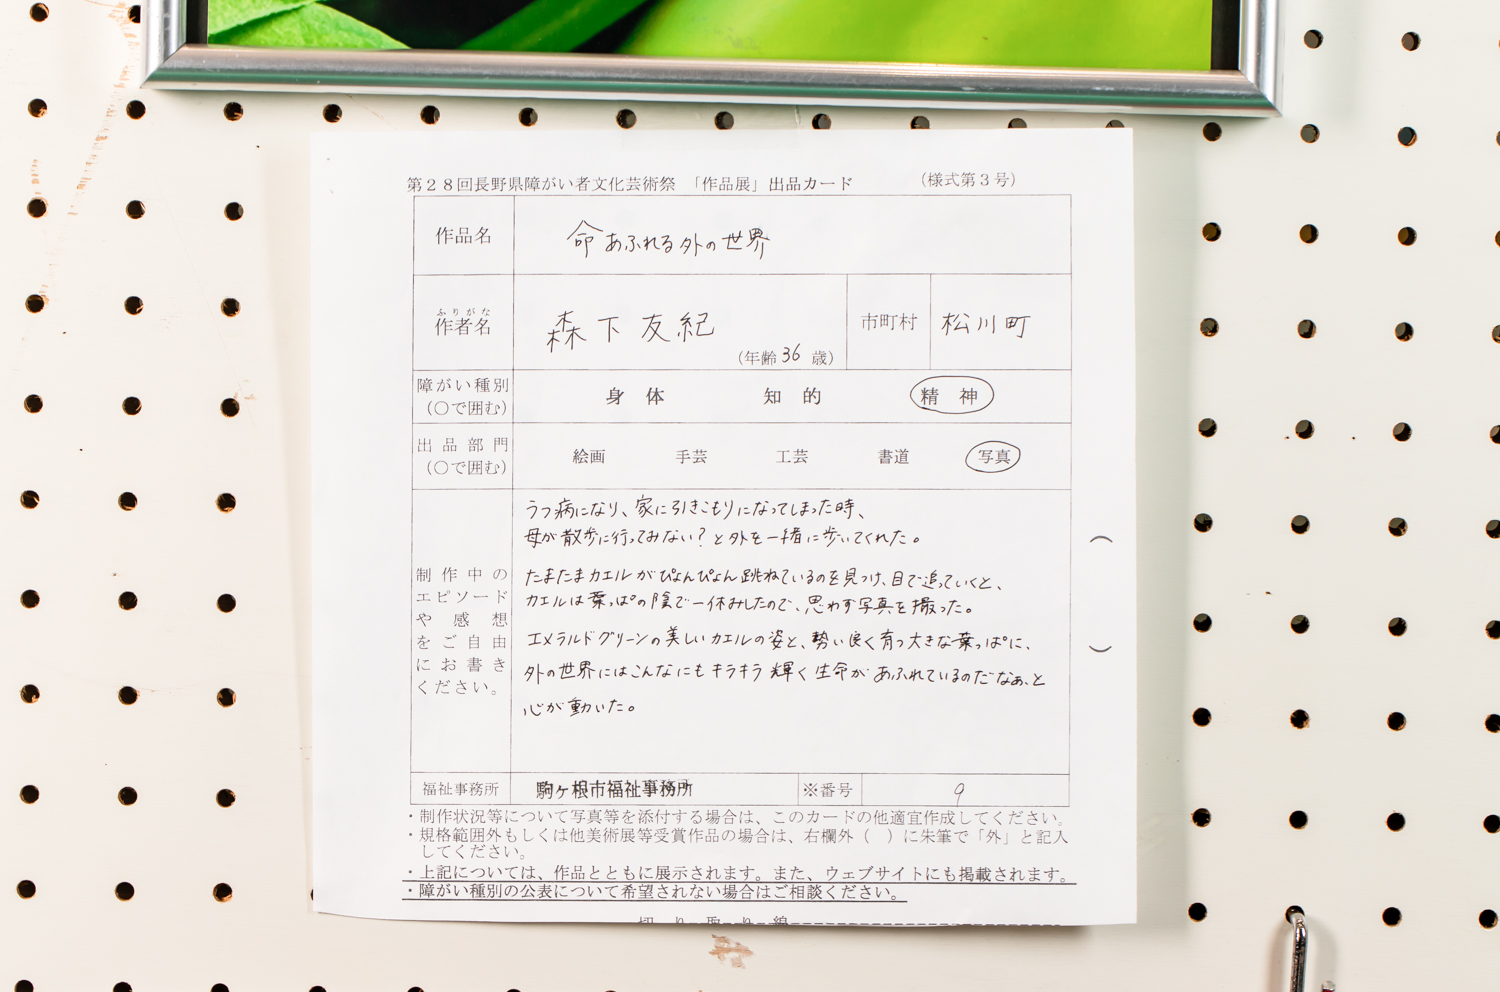 第28回長野県障がい者文化芸術祭 「作品展」出品カード (様式第3号)
作品名 命あふれる外の世界
ふりがな
作者名 森下友紀 (年齢36歳) 市町村 松川町
障がい種別 身体 知的 精神
(○で囲む)
出品部門 絵画 手芸 工芸 書道 写真
(○で囲む)
制作中の
エピソード
や感想
をご自由
にお書き
ください。
うつ病になり、家に引きこもりになってしまった時、
母が散歩に行ってみない?と外を一緒に歩いてくれた。
たまたまカエルがぴょんぴょん跳ねているのを見つけ、目で追っていくと、
カエルは葉っぱの陰で一休みしたので、思わず写真を撮った。
エメラルドグリーンの美しいカエルの姿と、勢い良く育つ大きな葉っぱに、
外の世界にはこんなにもキラキラ輝く生命があふれているのだなぁ、と
心が動いた。
福祉事務所 駒ヶ根市福祉事務所 ※番号 9
・制作状況等について写真等を添付する場合は、このカードの他適宜作成してください。
・規格範囲外もしくは他美術展等受賞作品の場合は、右欄外( )に朱筆で「外」と記入
してください。
・上記については、作品とともに展示されます。また、ウェブサイトにも掲載されます。
・障がい種別の公表について希望されない場合はご相談ください。
切り取り線